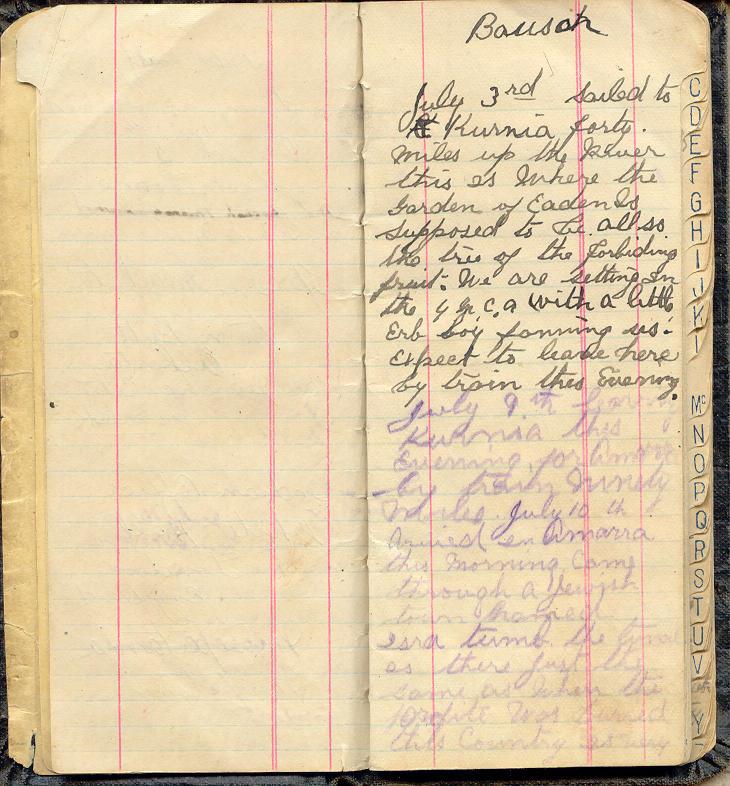 Bausch
July 3rd sailed to
Kurnia forty
miles up the River
this is Where the
Garden of Eaden Is
supposed to be. allso
the tree of the forbiding
fruit. We are setting in
the y m c. a with a little
Erb boy fanning us.
Expect to leave here
by train this Evening.
July 9th
Kurnia this
Evening for Amara
by train Ninety
Miles. July 10th
Arived en Amarra
this Morning Came
through a Jewish
town
Esra tumb. the
as there just the
same as When the
Was Buried
this Country is very
C
D
E
F
G
H
I
J
K
L
Mc
N
O
P
Q
R
S
T
U
V
Y